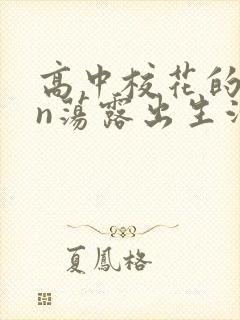 高中校花的
n蕩露出生
夏鳳格